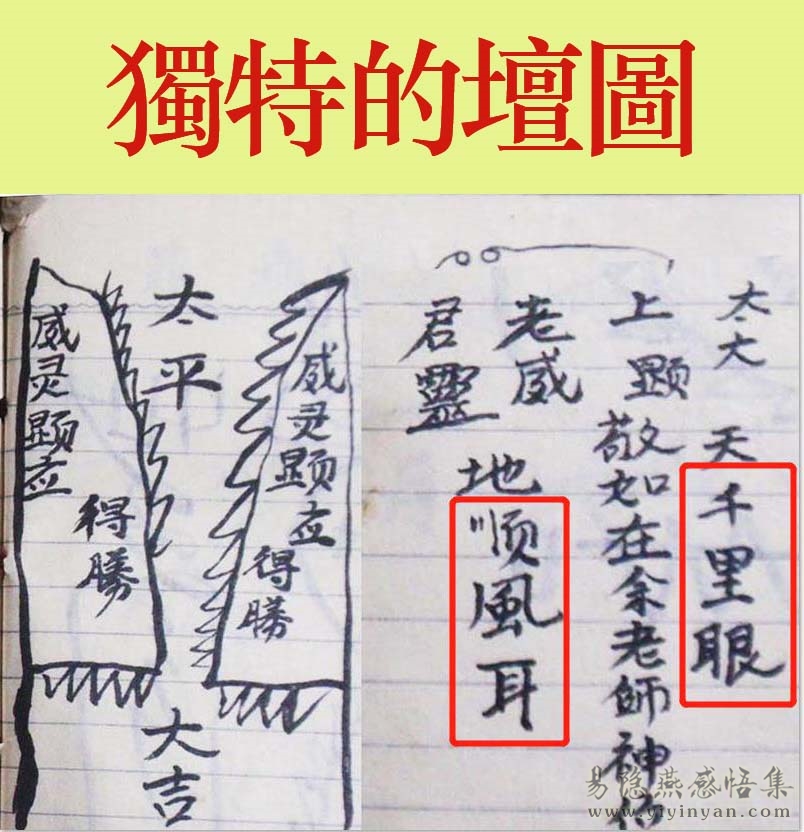 獨特的壇圖
威灵显应
得勝
太平
大吉
威灵显应
得勝
太大
上显
老威
君靈
天千里眼
敬如在余老師神
地顺風耳
易隐燕感悟集
www.yiyinyan.com